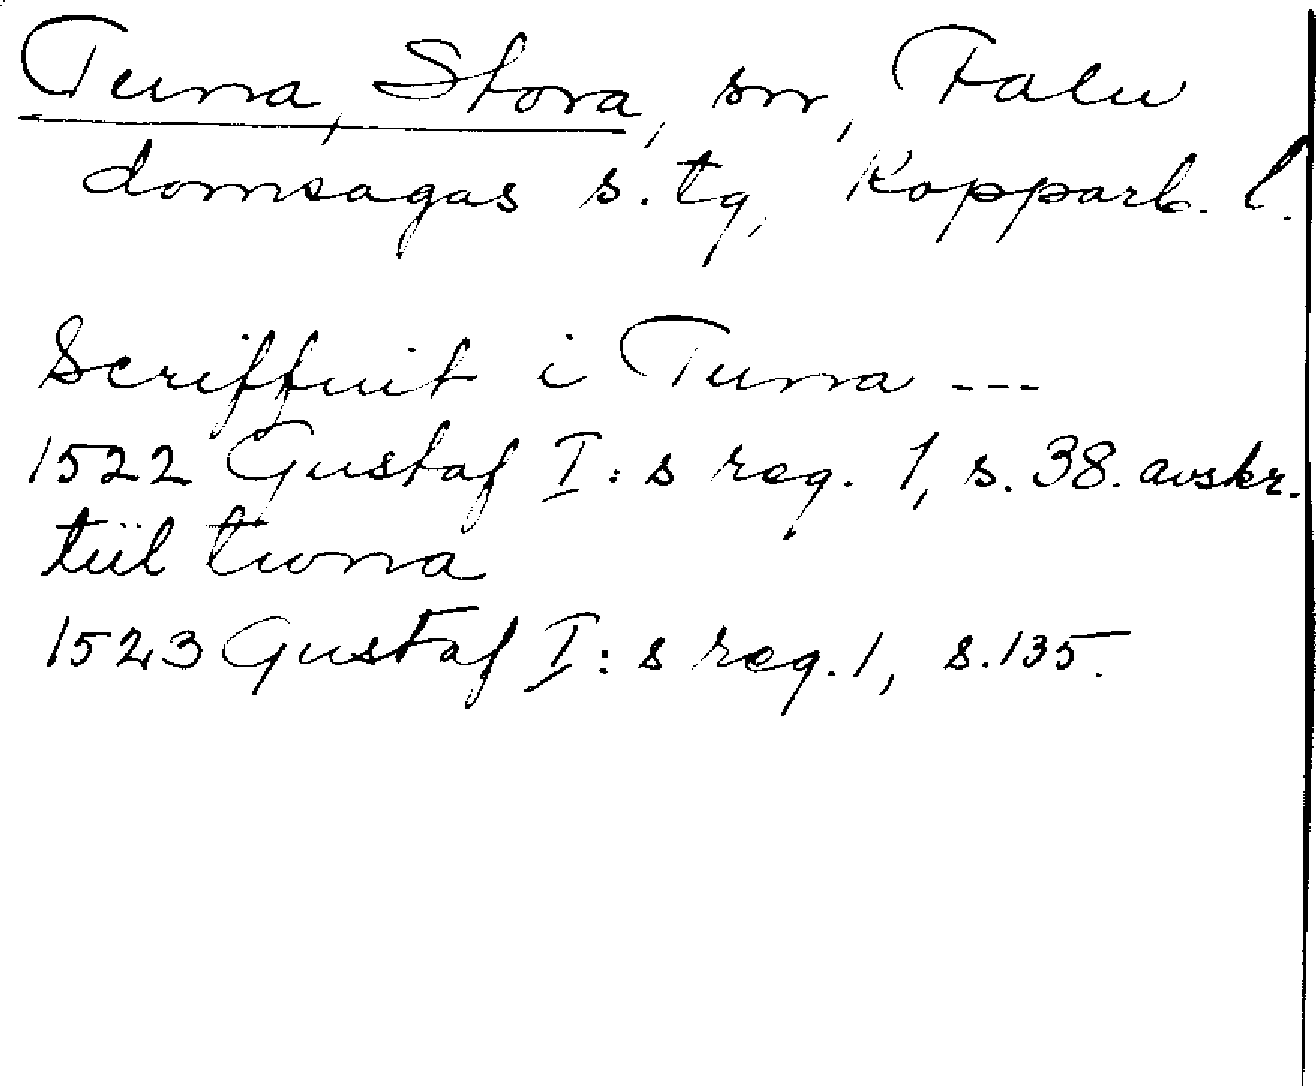 Tuna, Stora, sn, Falu
domsagas s. tg, Kopparb. l.
Scriffuit i Tuna ---
1522 Gustaf I:s reg. 1, s. 38. avskr.
tiil twna
1523 Gustaf I:s reg. 1, s. 135.